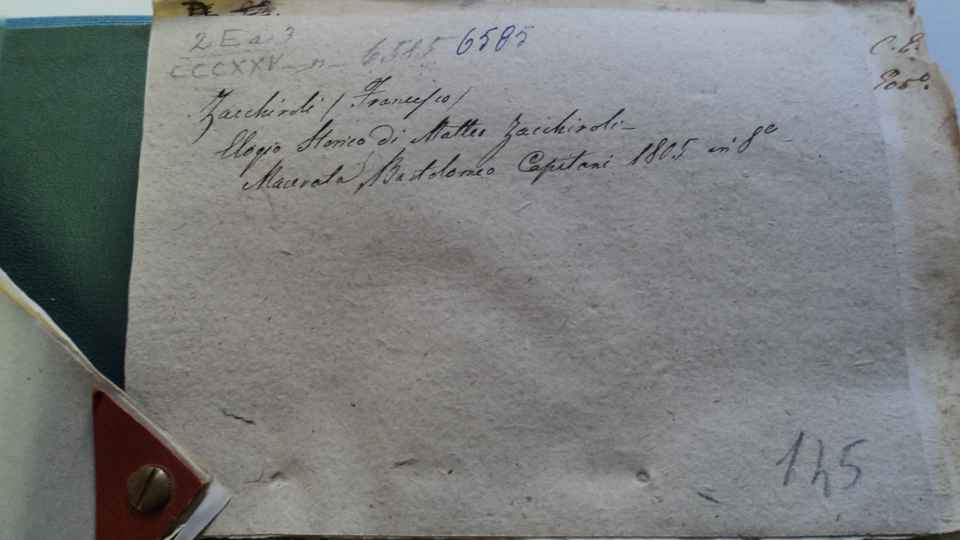 2 E a. 3
CCCXXV n 6585 6585
C. E.
Zacchiroli / Francesco /
Elogio Storico di Matteo Zacchiroli -
Macerata, Bartolomeo Capitani 1805 in 8º -
145